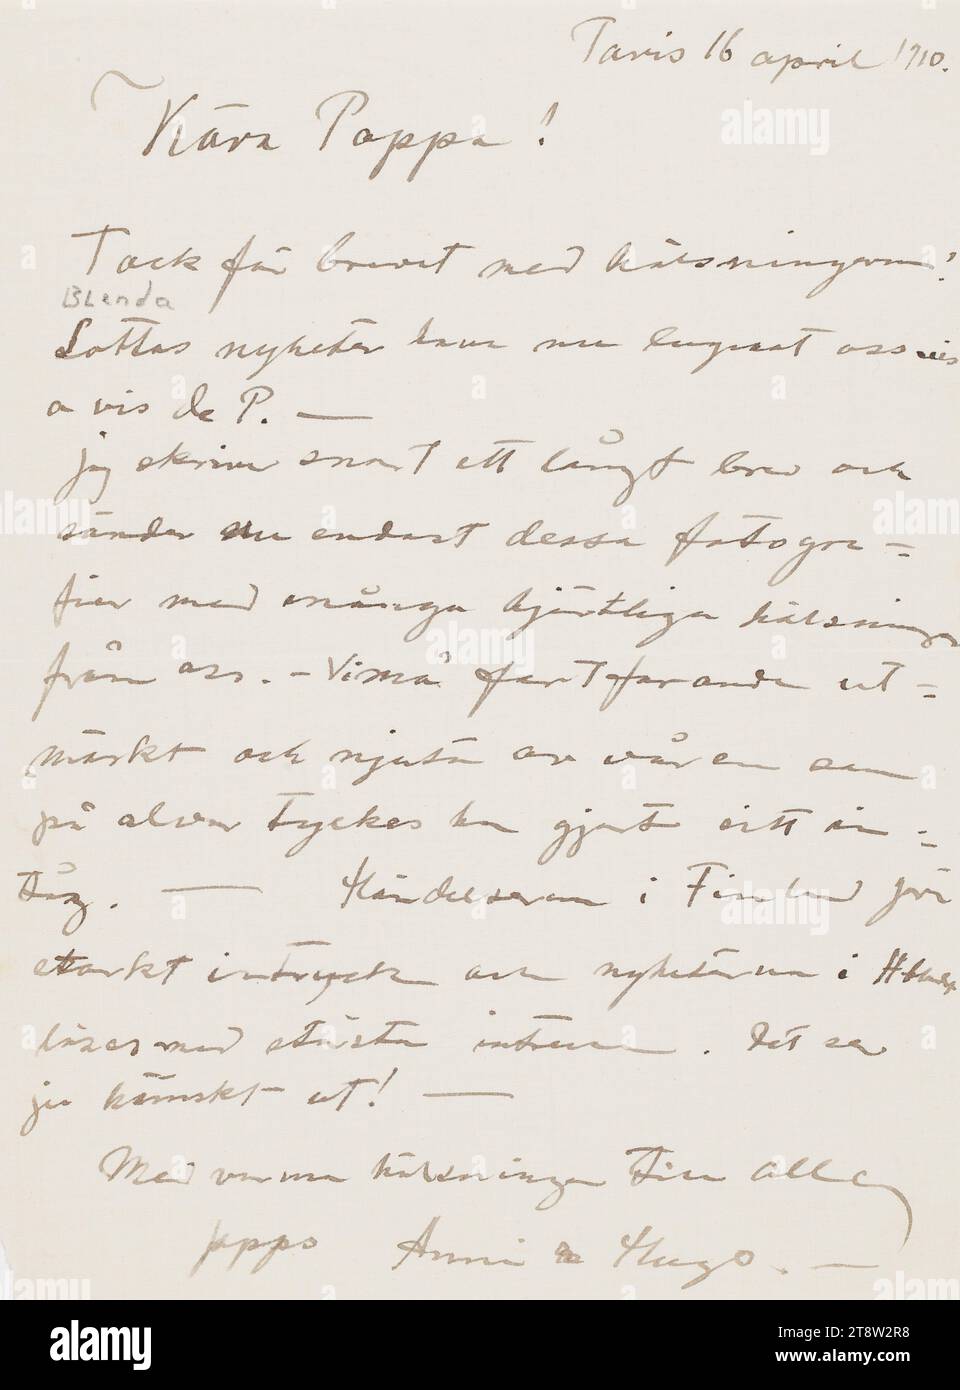 Paris 16 april 1910.
Kära Pappa!
Tack för brevet med hälsningarna!
Blenda
Lottas nyheter hava nu lugnat oss vis
a vis de P. —
jag skriver snart ett långt brev och
sänder nu endast dessa fotogra-
fier med många hjärtliga hälsningar
från oss. – Vi må fortfarande ut-
märkt och njuta av våren som
på alvar tyckes ha gjort sitt in-
tåg. — Händelserna i Finland gör
starkt intryck och nyheterna i Hbladet
läses med största intresse. Det ser
ju hemskt ut! —
Med varma hälsningar till alla
pappas Anni & Hugo. —
alamy
Image ID: 2T8W2R8
www.alamy.com